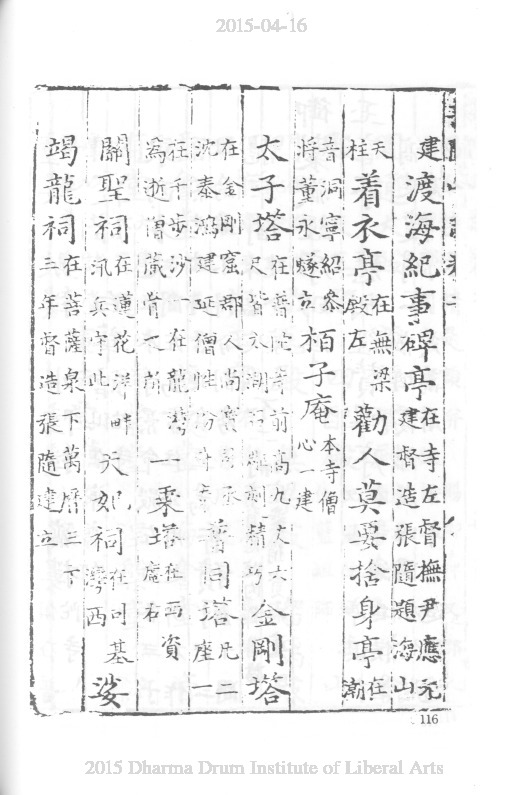 2015-04-16
建渡海紀事碑亭在寺左督撫尹應元建督造張隨題海山
天柱着衣亭在無梁殿左勸人莫要捨身亭在潮
音洞寧紹參將董永燧立栢子庵本寺僧心一建
太子塔在普陀寺前高九丈六尺皆太湖石雕刻精巧金剛塔
在金剛窟郡人尚寶司丞沈泰鴻建延僧性普同塔凡二座一
在千步沙一在龍灣一乘塔在西資庵右
關聖祠在蓮花洋畔汛兵守此天妃祠在司基灣西娑
竭龍祠在菩薩泉下萬曆三十三年督造張隨建立
116
2015 Dharma Drum Institute of Liberal Arts